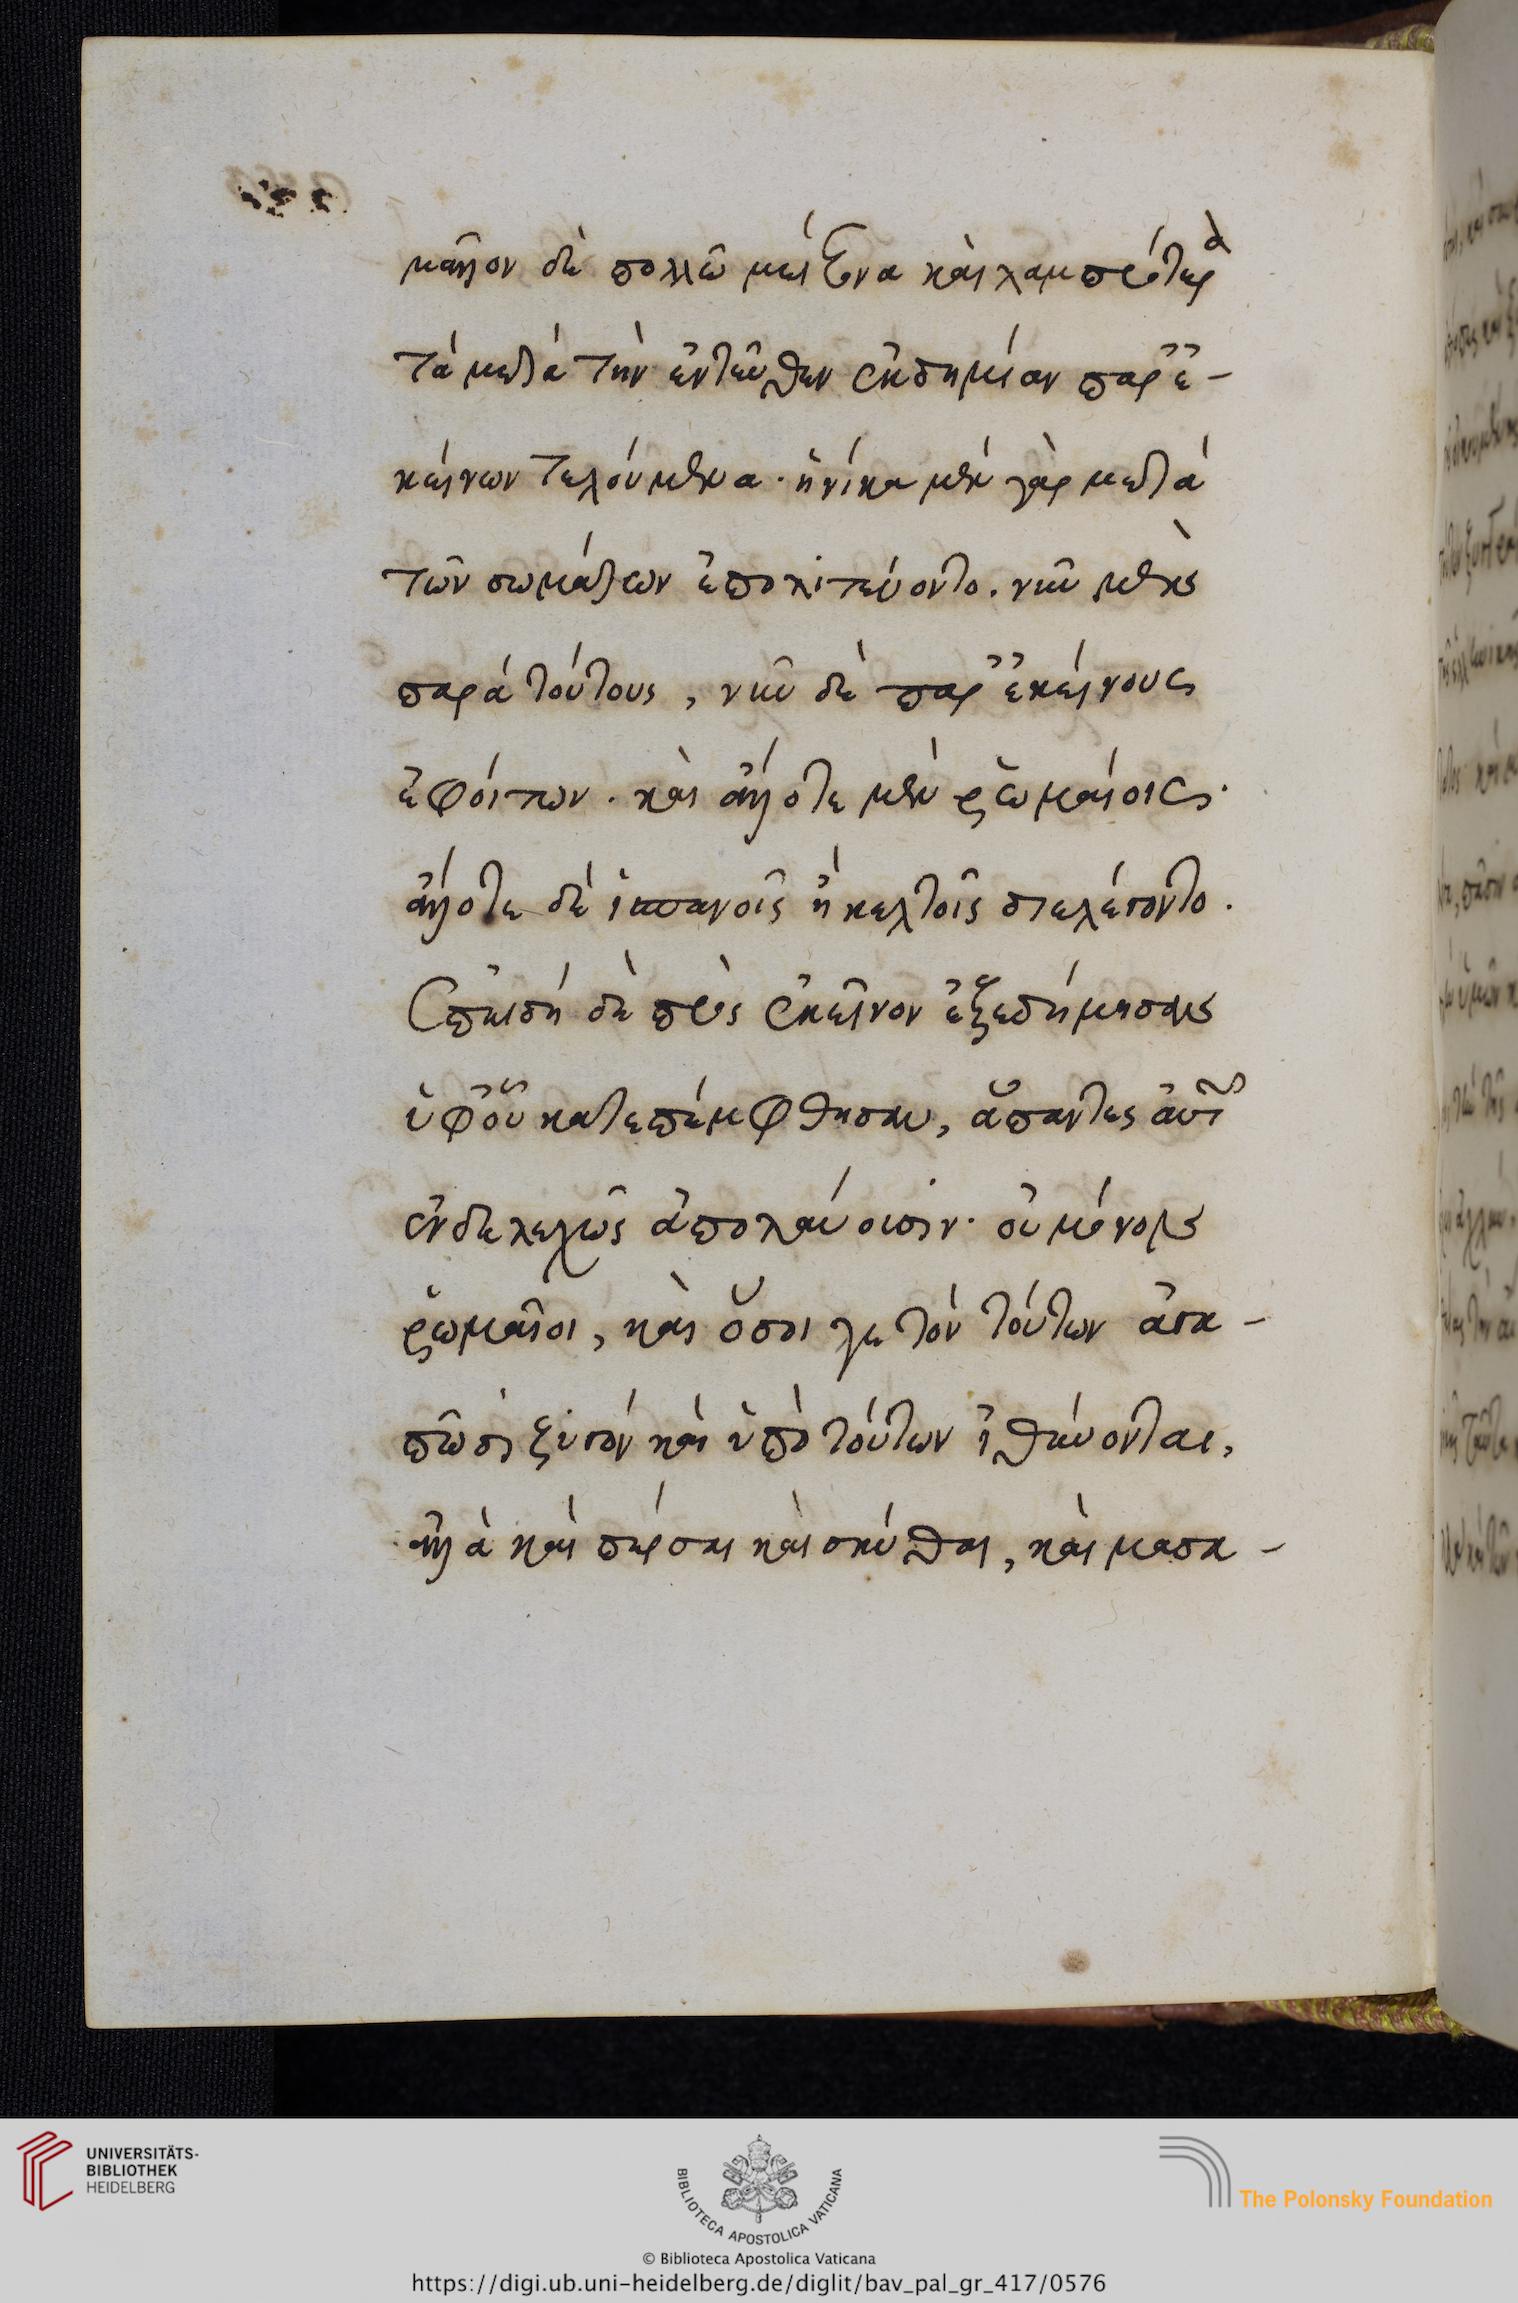 μᾶλλον δὲ πολλῶ μείζονα καὶ λαμπρότερα
τὰ μετὰ τὴν ἐντεῦθεν ἐκδημίαν παρ' ἐ-
κείνων τελούμενα. ἡνίκα μὲν γὰρ μετὰ
τῶν σωμάτων ἐπολιτεύοντο. νῦν μὲν
παρὰ τούτους, νῦν δὲ παρ' ἐκείνους
ἐφοίτων. καὶ ἄλλοτε μὲν ῥωμαίοις.
ἄλλοτε δὲ ἱσπανοῖς ἢ κελτοῖς διελέγοντο.
ἐπειδὴ δὲ πρὸς ἐκεῖνον ἐξεδήμησαν
ὑφ' οὗ κατεπέμφθησαν, ἅπαντες αὐτῶν
ἐνδελεχῶς ἀπολαύουσιν. οὐ μόνον
ῥωμαῖοι, καὶ ὅσοι γε τὸν τούτων ἀγα-
πῶσι ζυγὸν καὶ ὑπὸ τούτων ἰθύνονται,
ἀλλὰ καὶ πέρσαι καὶ σκύθαι, καὶ μασα-
UNIVERSITÄTS-
BIBLIOTHEK
HEIDELBERG
BIBLIOTECA APOSTOLICA VATICANA
The Polonsky Foundation
© Biblioteca Apostolica Vaticana
https://digi.ub.uni-heidelberg.de/diglit/bav_pal_gr_417/0576